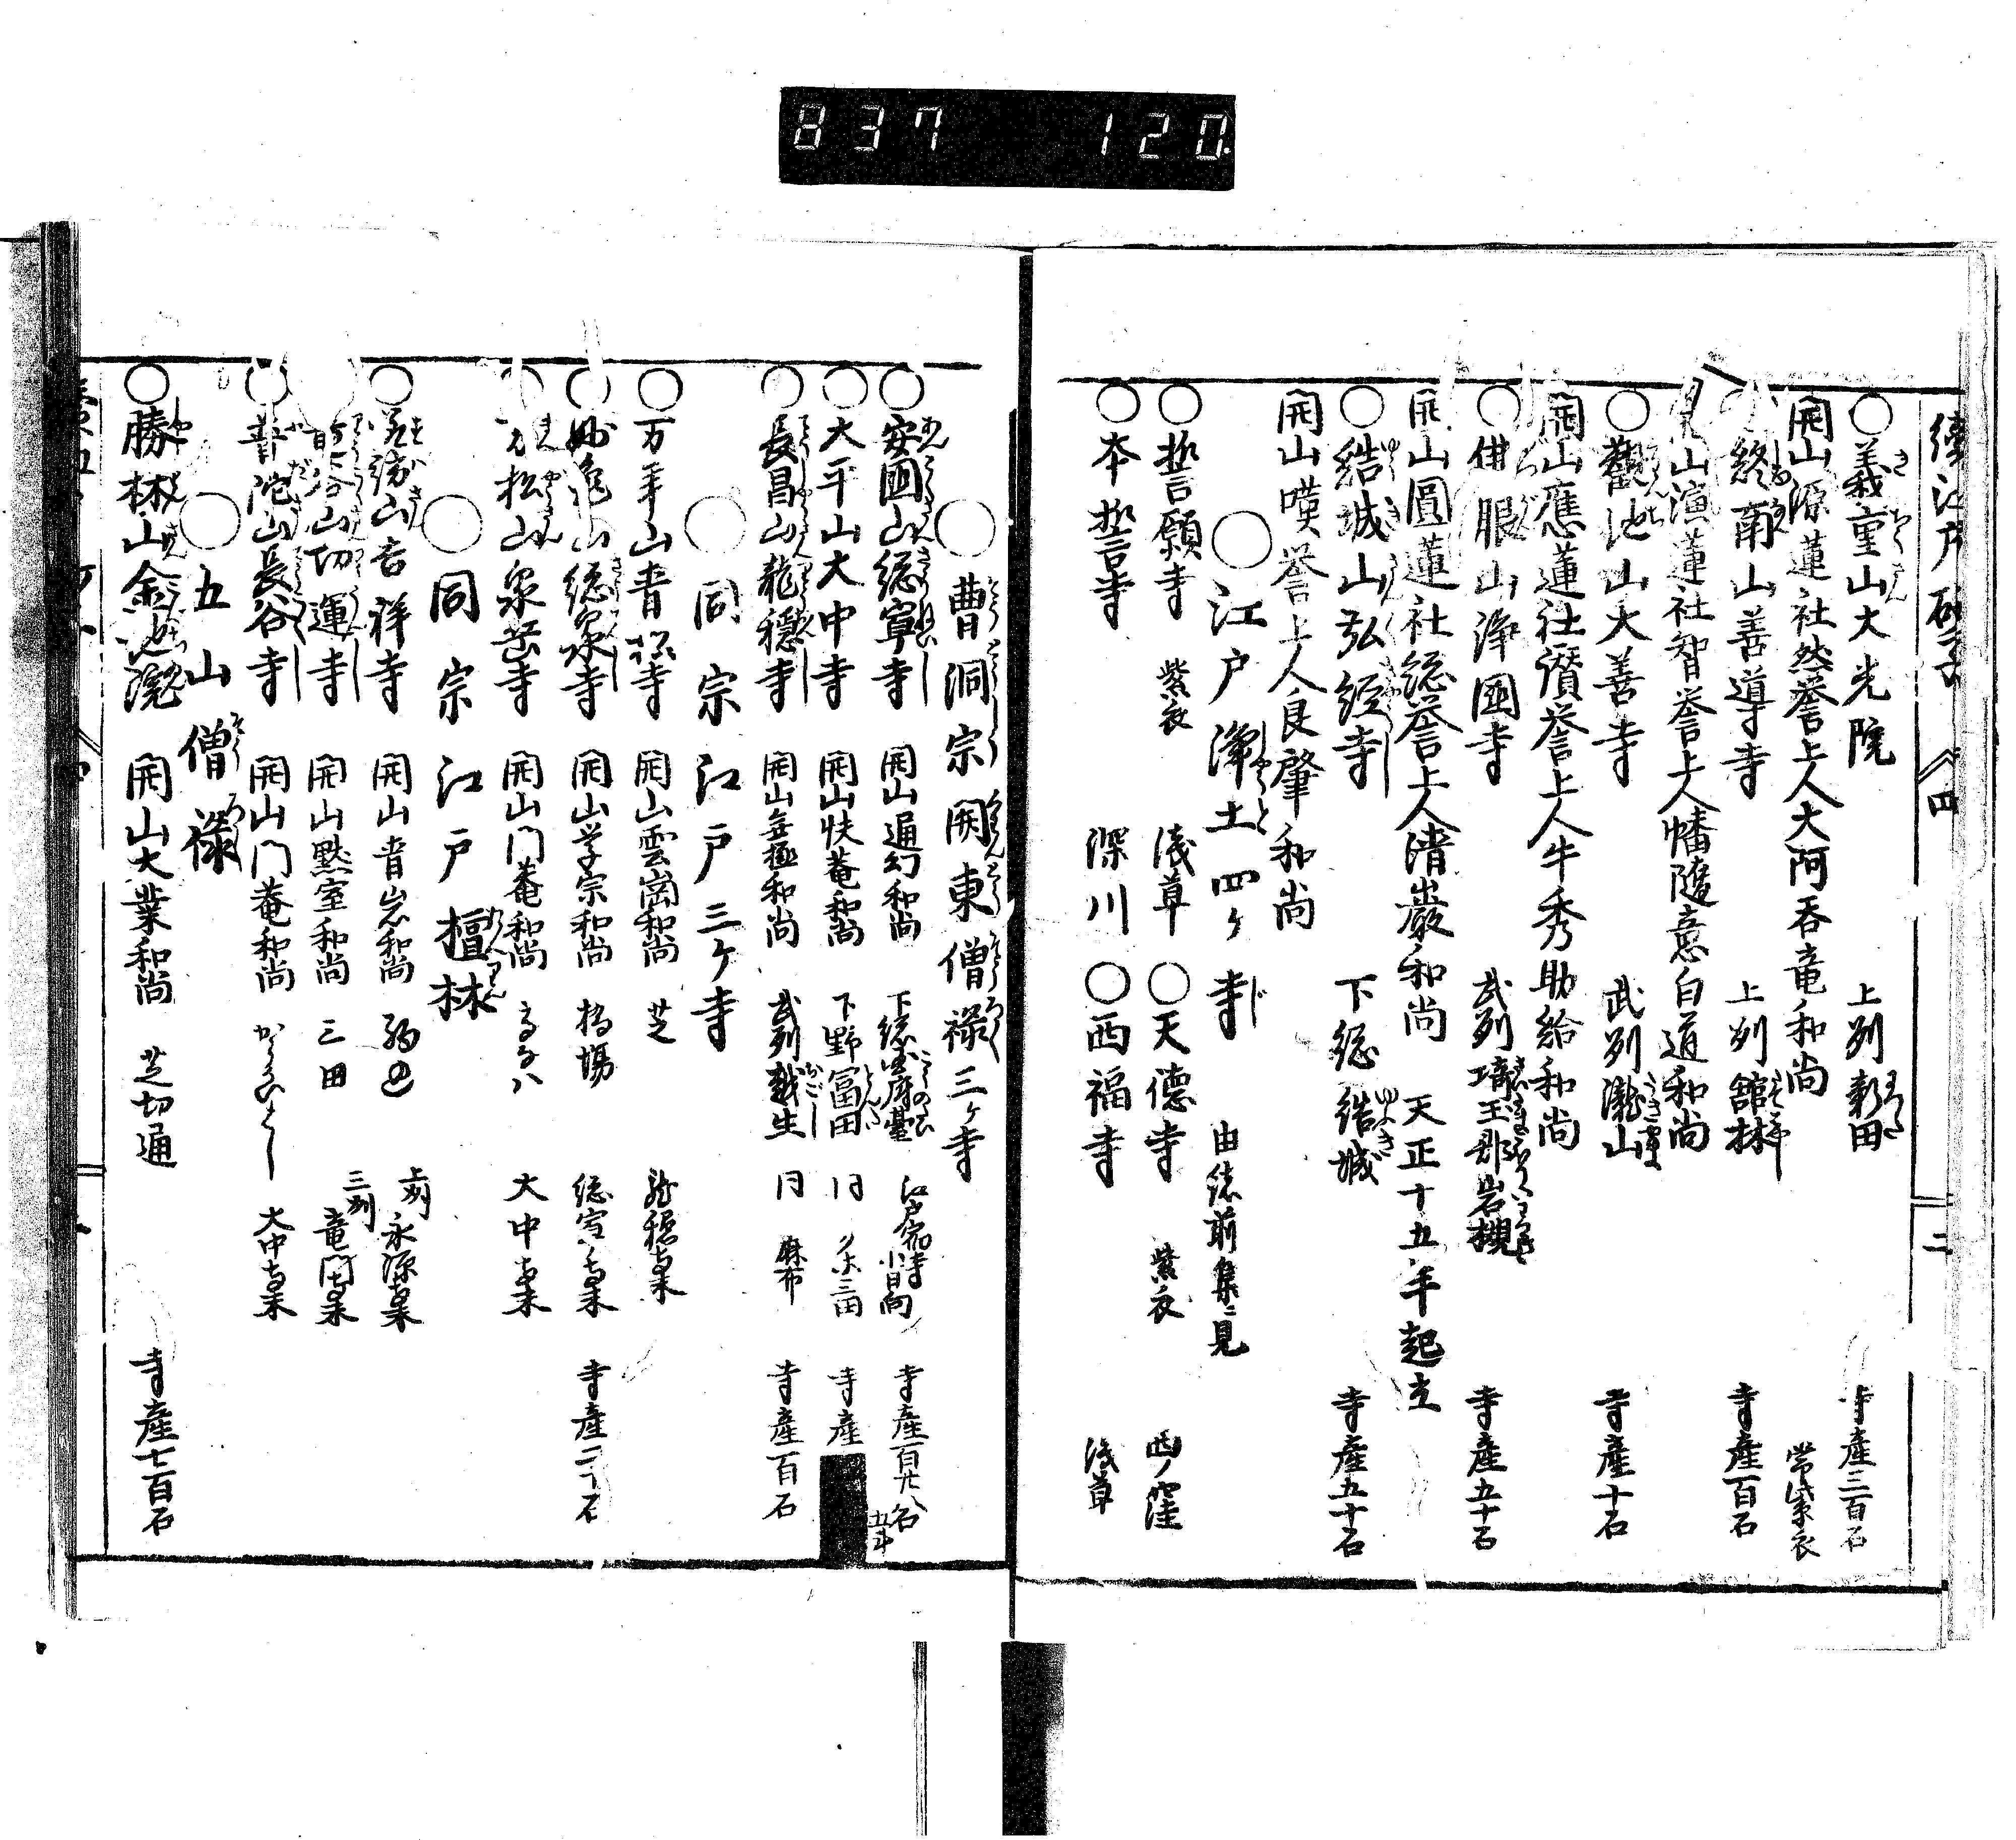 837 120
續江戸砂子 四 二
○義重山大光院 上刕新田 寺産三百石
開山源蓮社然誉上人大阿呑竜和尚 常紫衣
終南山善導寺 上刕舘林 寺産百石
開山演蓮社智誉上人幡随意白道和尚
○觀池山大善寺 武刕瀧山 寺産十石
開山應蓮社讚誉上人牛秀助給和尚
○佛眼山浄國寺 武刕埼玉郡岩槻 寺産五十石
開山圓蓮社総誉上人清巌和尚 天正十五年起立
○結城山弘経寺 下総結城 寺産五十石
開山嘆誉上人良肇和尚
○江戸浄土四ケ寺 由緒前集ニ見
○誓願寺 紫衣 浅草 ○天徳寺 紫衣 西ノ窪
○本誓寺 深川 ○西福寺 浅草
○曹洞宗関東僧禄三ケ寺
○安國山総寧寺 開山通幻和尚 下総国府臺 江戸宿寺小日向 寺産百廿八石五斗
○大平山大中寺 開山快菴和尚 下野冨田 同 三田 寺産
○長昌山龍穏寺 開山無極和尚 武刕越生 同 麻布 寺産百石
○同宗江戸三ケ寺
○万年山青松寺 開山雲崗和尚 芝 龍穏寺末
○妙亀山総泉寺 開山学宗和尚 橋場 総寧寺末 寺産二十石
○万松山泉岳寺 開山門菴和尚 大中寺末
○同宗江戸檀林
○吉祥寺 開山青岩和尚 駒込 上刕永源寺末
功運寺 開山黙室和尚 三田 三刕竜門寺末
○普陀山長谷寺 開山門菴和尚 大中寺末
○五山僧禄
○勝林山金地院 開山大業和尚 芝切通 寺産七百石